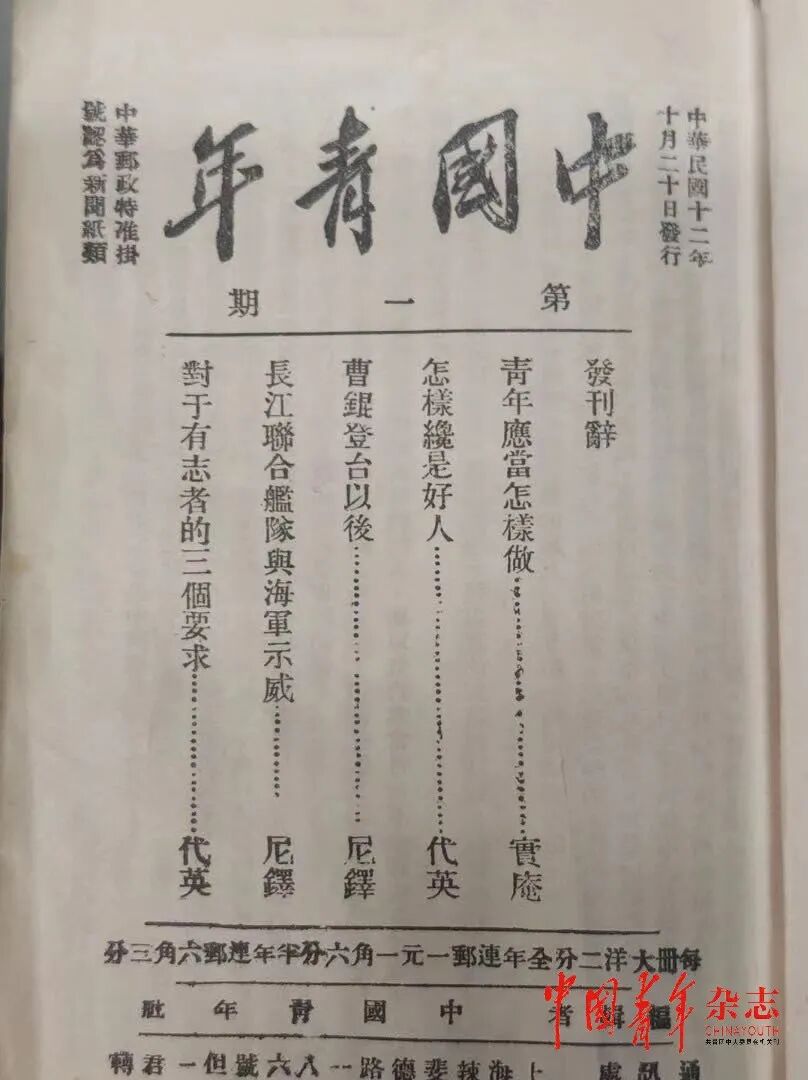 中華民國十二年
十月二十日發行
中國青年
中華郵政特准掛
號認爲新聞紙類
第一期
發刊辭
青年應當怎樣做……實庵
怎樣纔是好人……代英
曹錕登台以後……尼鐸
長江聯合艦隊與海軍示威……尼鐸
對于有志者的三個要求……代英
每冊大洋二分全年連郵一元一角六分半年連郵六角三分
編輯者中國青年社
通訊處上海辣斐德路一八六號但一君轉
中國青年杂志
CHINAYOUTH